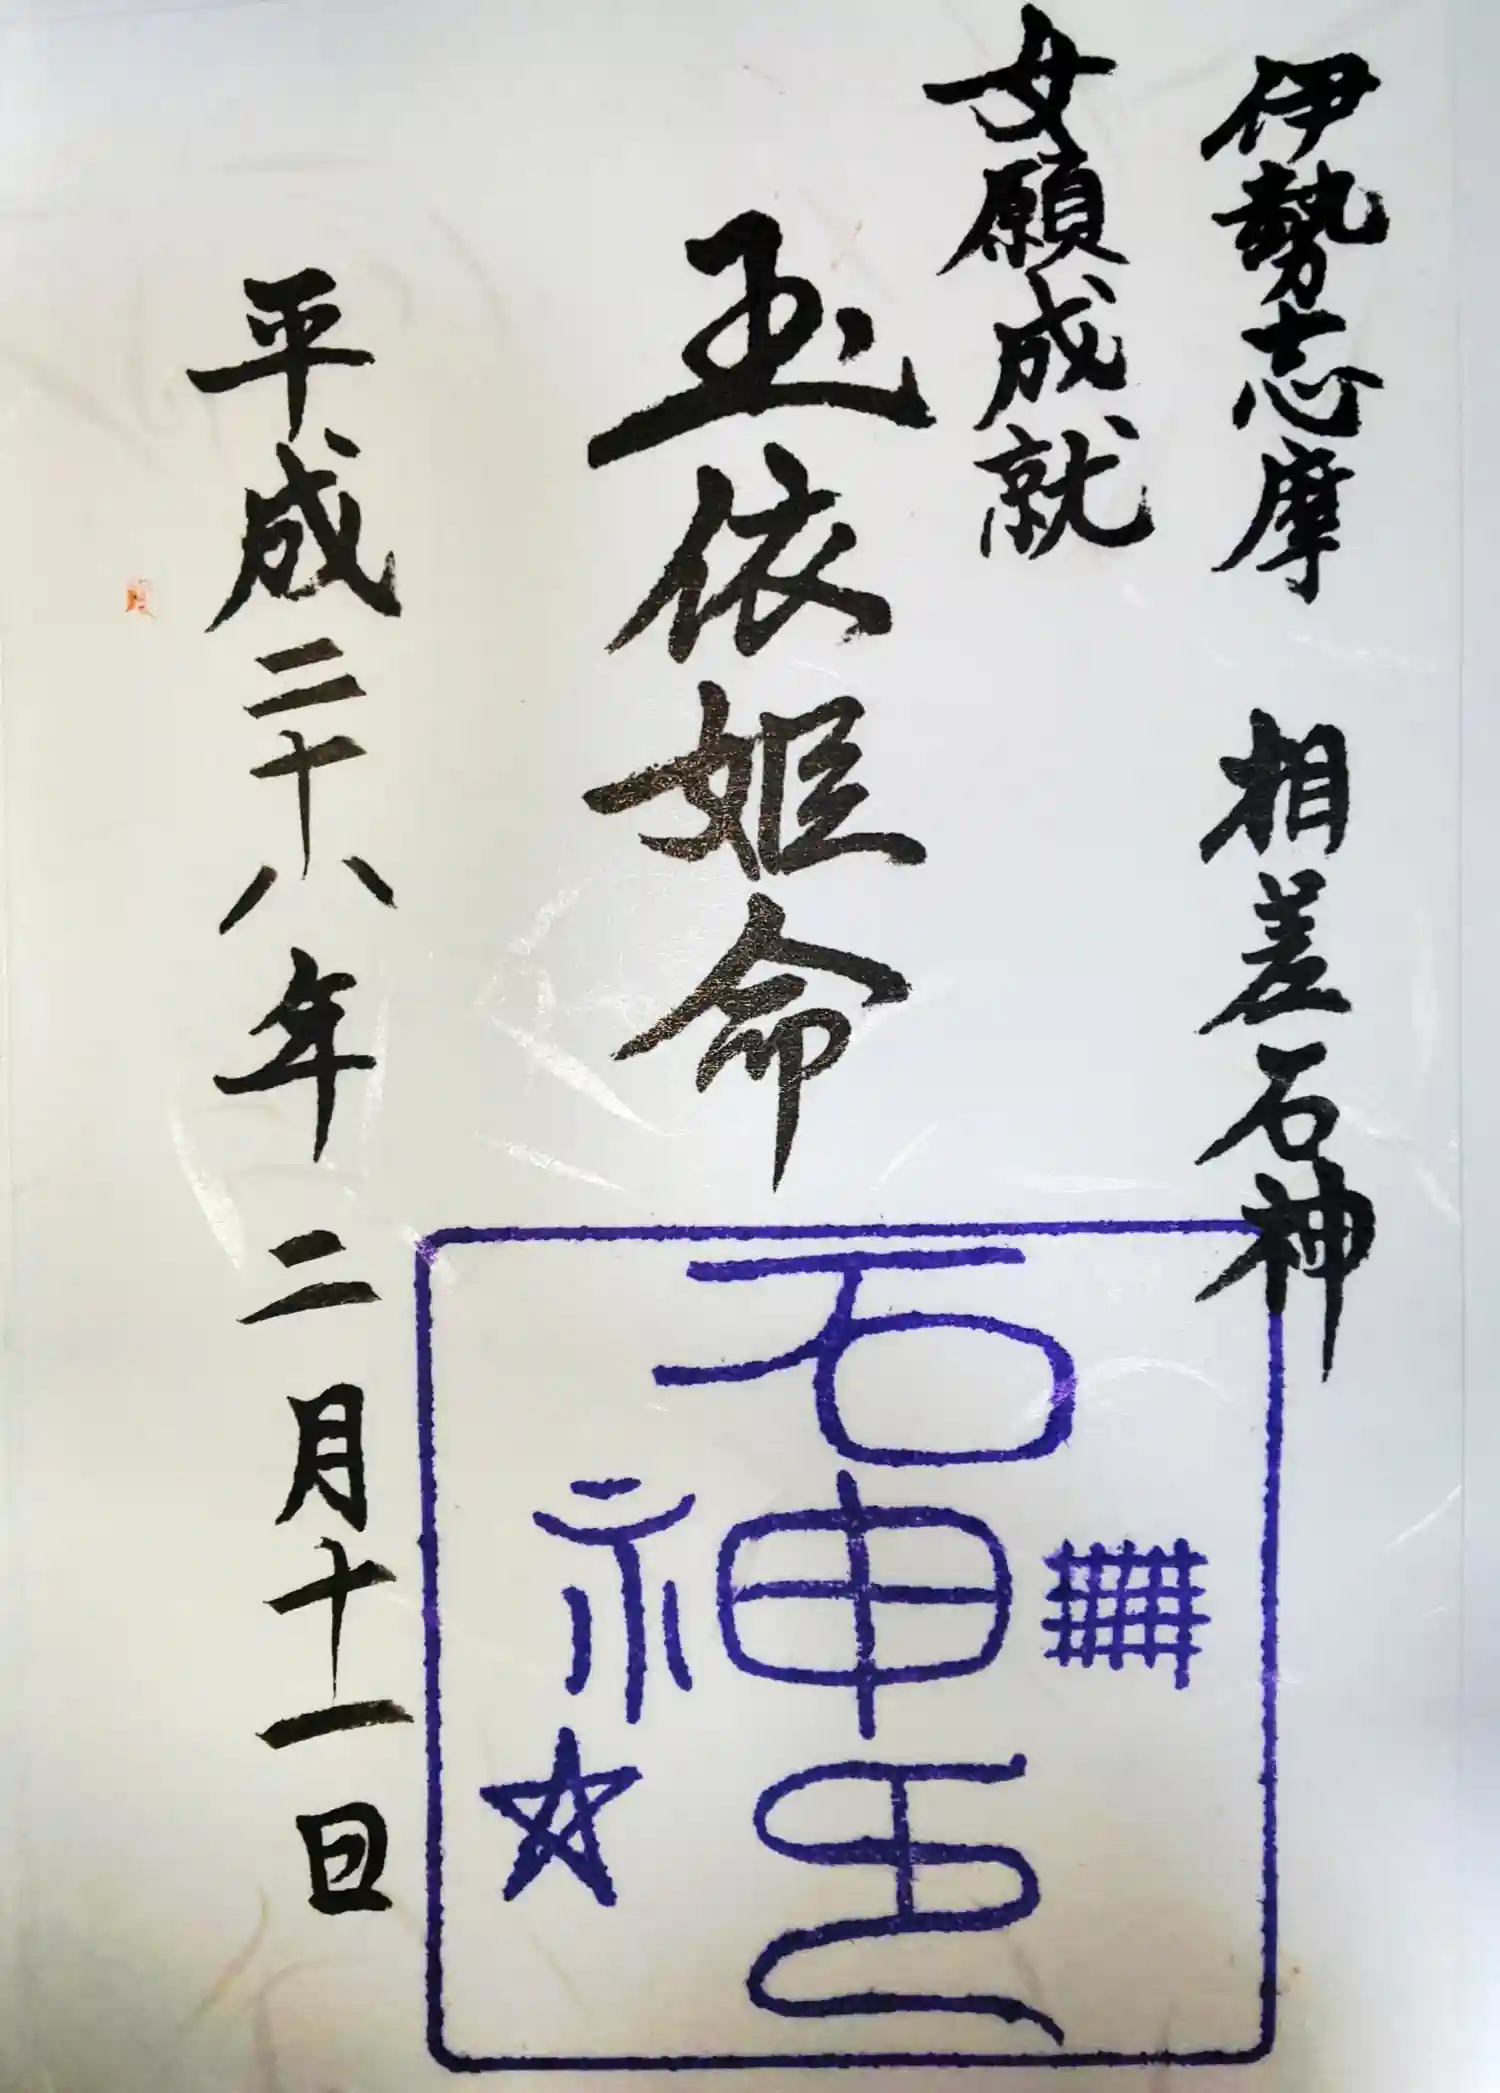 伊勢志摩 相差石神
女願成就
玉依姫命
平成二十八年二月十一日
石神